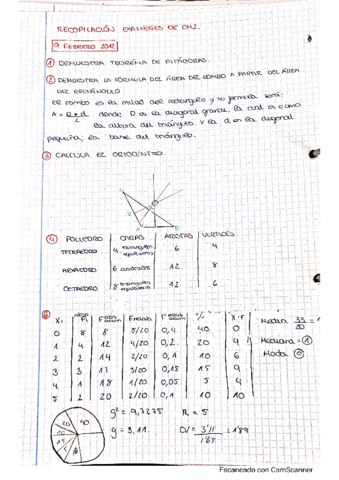 RECOPILACIÓN EXAMENES DE CM2.
9 FEBRERO 2012
① DEMUESTRA TEOREMA DE PITÁGORAS.
② DEMUESTRA LA FÓRMULA DEL ÁREA DEL ROMBO A PARTIR DEL ÁREA
DEL RECTÁNGULO
El rombo es la mitad del rectangulo y su formula será:
A = D * d / 2 donde D es la diagonal grande, la cual es como
la altura del triángulo y la d es la diagonal
pequeña; la base del triángulo.
③ CALCULA EL ORTOCENTRO.
④ POLIEDRO CARAS ARISTAS VERTICES
TETRAEDRO 4 triangulos equilateros 6 4
HEXAEDRO 6 cuadrados 12 8
OCTAEDRO 8 triangulos equilateros 12 6
Xi Fi Frelat % X·F
0 8 8 8/20 0,4 40 0
1 4 12 4/20 0,2 20 4
2 2 14 2/20 0,1 10 6
3 3 17 3/20 0,15 15 9
4 1 18 1/20 0,05 5 4
5 2 20 2/20 0,1 10 10
Media 33/20
Mediana = 1
Moda 0
g² = 9,7275 R = 5
g = 3,11. CV = 3'11 / 1'65 = 1'89
Escaneado con CamScanner